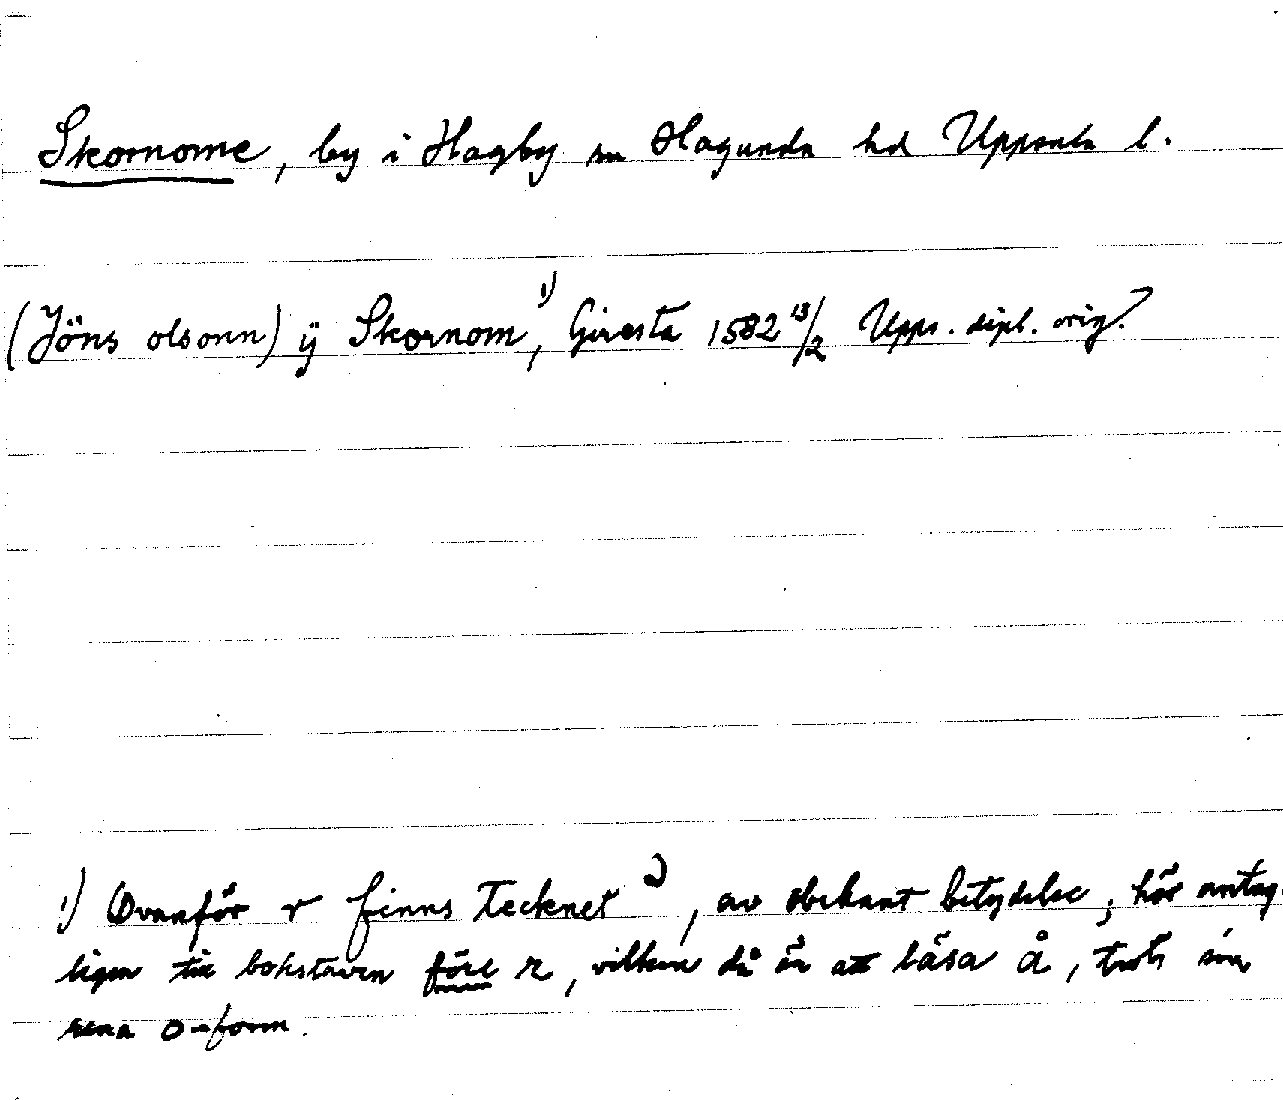 Skornome, by i Hagby sn Hagunda hd Uppsala l.
(Jöns olsonn) ÿ Skornom ¹⁾, Giresta 1582 13/2 Upps. dipl. orig.?
¹⁾ Ovanför r finns tecknet , av obekant betydelse; hör antag-
ligen till bokstaven före r, vilken då är att läsa å, trots sin
rena o-form.